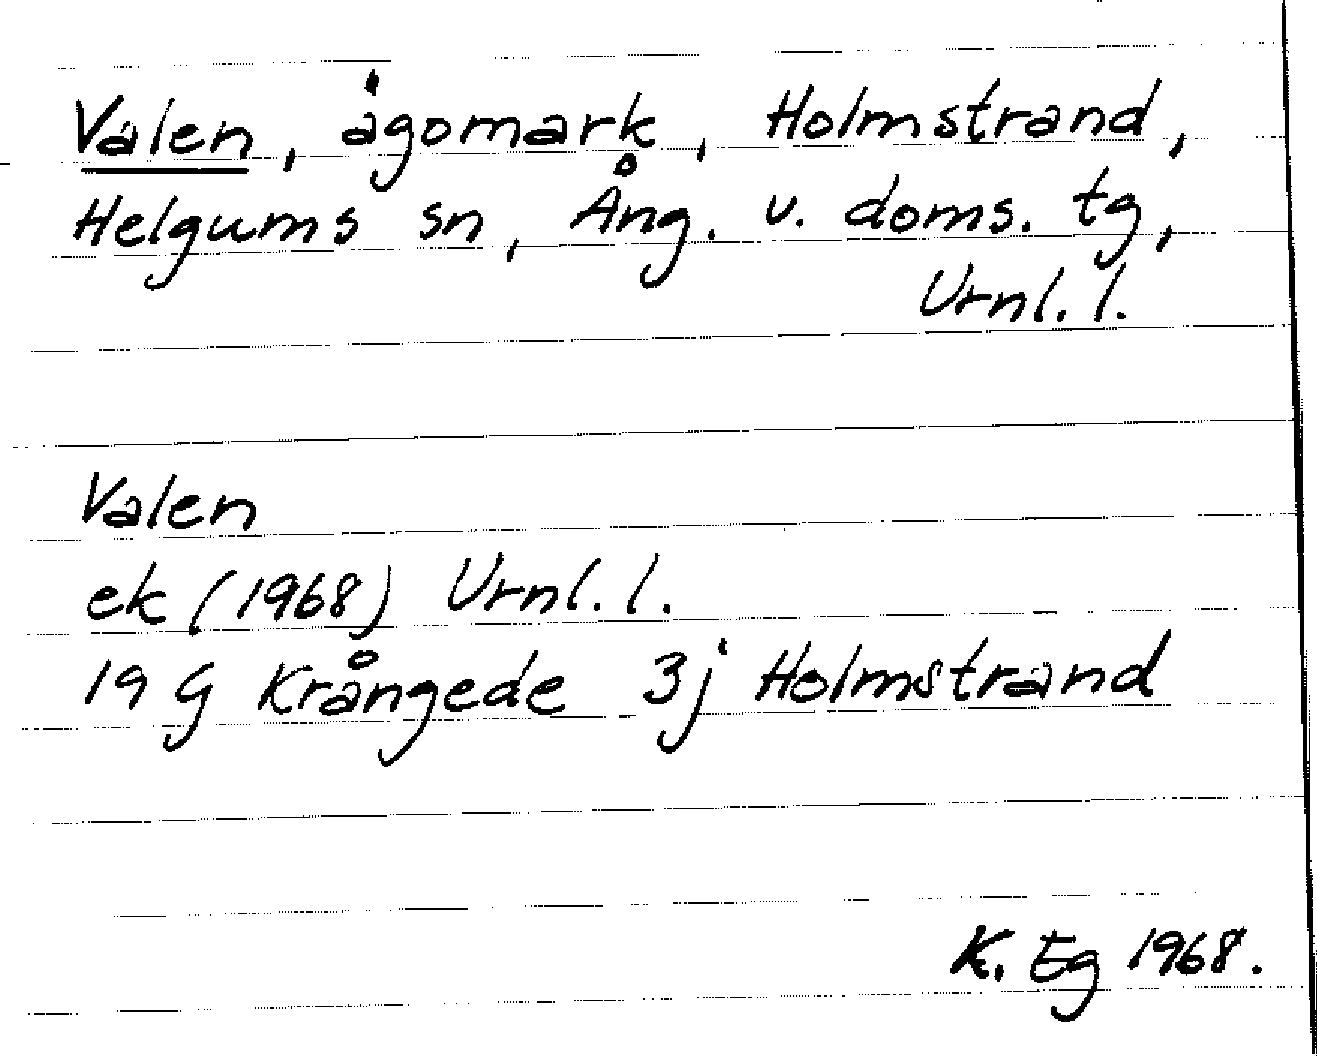 Valen, ägomark, Holmstrand,
Helgums sn, Ång. v. doms. tg,
Urnl. l.
Valen
ek (1968) Urnl. l.
19 G Krångede 3j Holmstrand
K. Eg 1968.